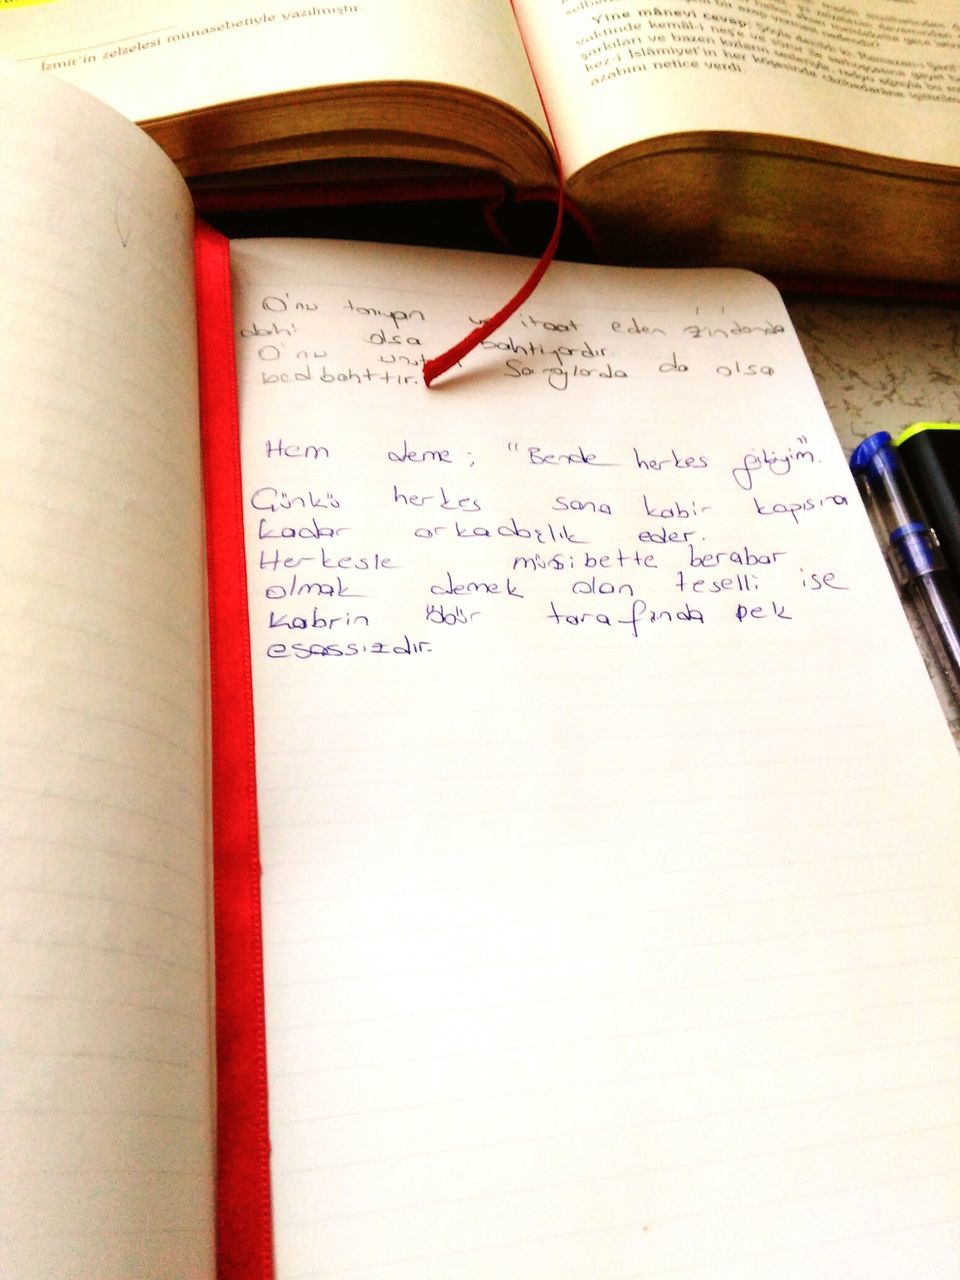 İzmir'in zelzelesi münasebetiyle yazılmıştır.
Yine mânevî cevap: Şöyle denildi ki: Ramazan-ı Şerif
vaktinde kemâl-i neş'e ve
şarkıları ve bazen kızların
kez-i İslâmiyet'in her köşesinde
azabını netice verdi.
O'nu tanıyan ve itaat eden zindanda
dahi olsa bahtiyardır.
O'nu unutan Saraylarda da olsa
bedbahttır.
Hem deme; "Bende herkes gibiyim."
Çünkü herkes sana kabir kapısına
kadar arkadaşlık eder.
Herkesle müsibette beraber
olmak demek olan teselli ise
Kabrin öbür tarafında pek
esassızdır.